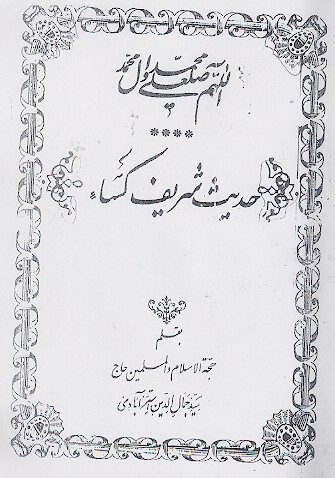 اللهم صل علی محمد و آل محمد
****
حدیث شریف کساء
بقلم
حجة الاسلام والمسلمین حاج
سید جمال الدین استرآبادی